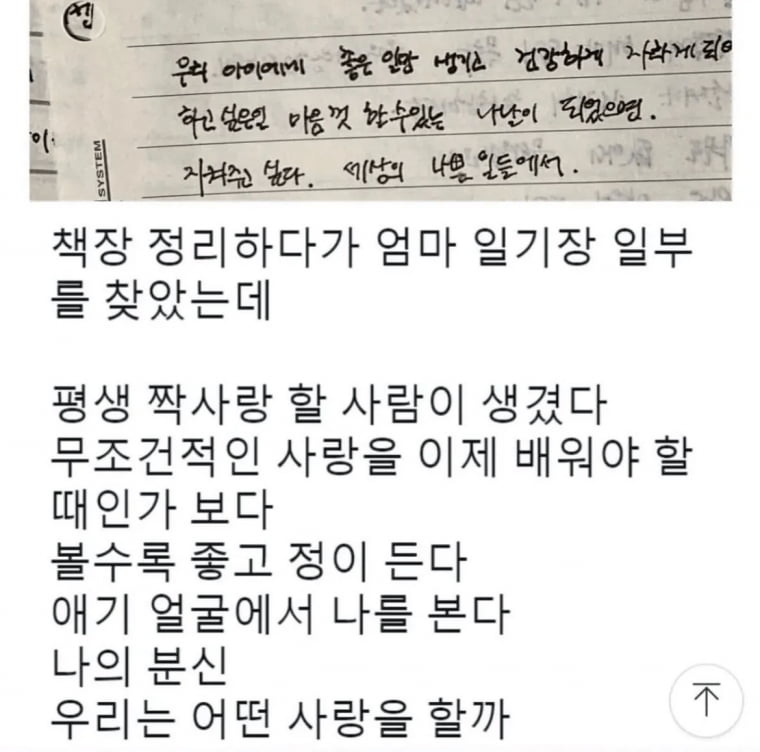 센
우리 아이에게 좋은 일만 생기고 건강하게 자라게 되어
하고 싶은일 마음껏 할 수 있는 나날이 되었으면.
이.
지켜주고 싶다. 세상의 나쁜 일들에서.
SYSTEM
책장 정리하다가 엄마 일기장 일부
를 찾았는데
평생 짝사랑 할 사람이 생겼다
무조건적인 사랑을 이제 배워야 할
때인가 보다
볼수록 좋고 정이 든다
애기 얼굴에서 나를 본다
나의 분신
우리는 어떤 사랑을 할까